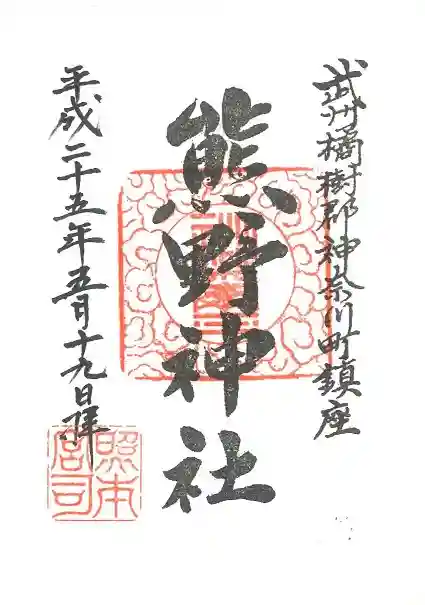 武州橘樹郡神奈川町鎮座
熊野神社
平成二十五年五月十九日拝
照本宮司